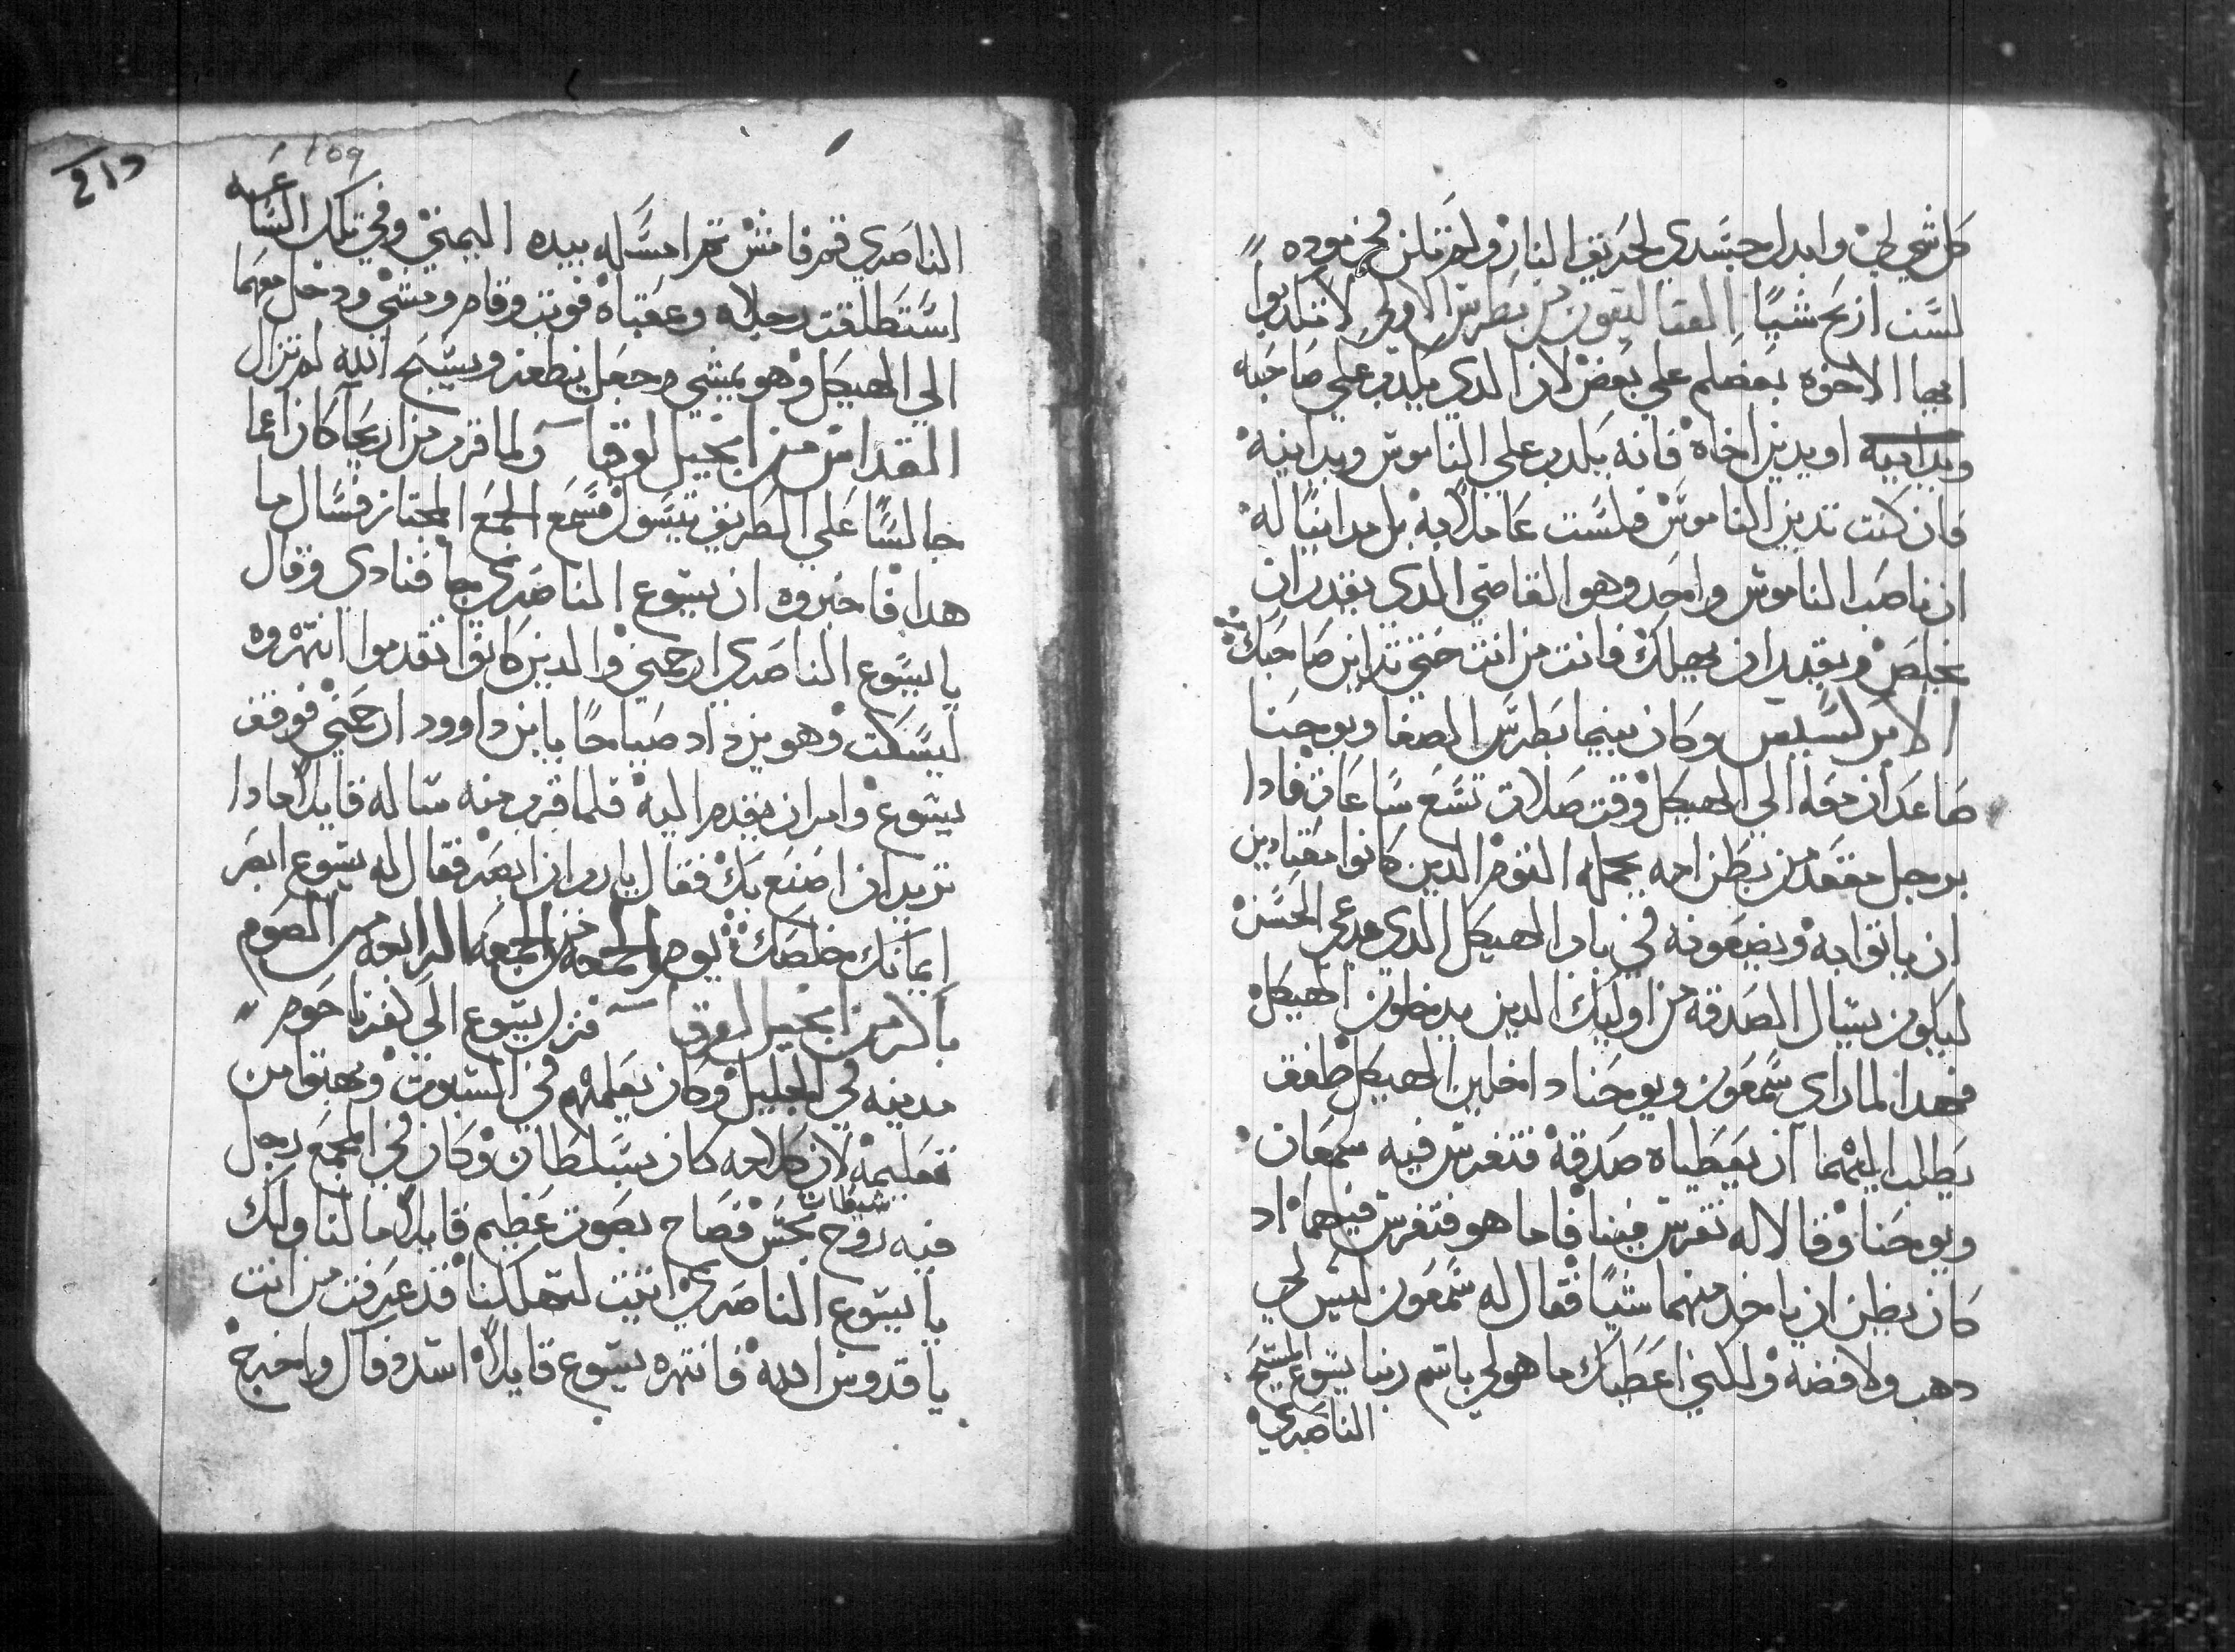 كل شي لي وابدل جسدي لحريق النار ولم تكن في موده
لست اربح شيًا القتاليقون من بطرس الاولي لا تتلدبوا
ايها الاخوه بعضكم علي بعض لان الدي يلدب علي صاحبه
ويداينه او يدين اخاه فانه يلدب علي الناموس ويداينه
فان كنت تدين الناموس فلست عاملًا به بل مداينًا له
ان ناصب الناموس واحد وهو القاضي الدي يقدر ان
يخلص ويقدر ان يهلك فانت من انت حتي تداين صاحبك
الابركسيس وكان بينما بطرس الصفا ويوحنا
صاعدان معا الي الهيكل وقت صلات تسع ساعات فادا
برجل مقعد من بطن امه يحمله القوم الدين كانوا معتادين
ان ياتوا به ويضعونه في باب الهيكل الدي يدعي الحسن
ليكون يسال الصدقه من اوليك الدين يدخلون الهيكل
فهدا لما راي سمعون ويوحنا داخلين الهيكل طفق
يطلب اليهما ان يعطياه صدقة فتفرس فيه سمعان
ويوحنا وقالا له تفرس فينا فاما هو فتفرس فيهما اد
كان يظن ان ياخد منهما شيًا فقال له سمعون ليس لي
دهب ولا فضه ولكني اعطيك ما هو لي باسم ربنا يسوع المسيح
الناصري
109
الناصري قم فامش ثم امسكه بيده اليمني وفي تلك الساعه
استطلقت رجلاه وعقباه قويت وقام ومشي ودخل معهما
الي الهيكل وهو يمشي وجعل ينطفر ويسبح الله لم تزال
القداس من انجيل لوقا ولما قرب من اريحا كان اعما
جالسًا علي الطريق يتسول فسمع الجمع المجتاز فسال ما
هدا فاخبروه ان يسوع الناصري جا فنادي وقال
يا يسوع الناصري ارحمني والدين كانوا تقدموا انتهروه
ليسكت وهو يزداد صياحًا يا بن داوود ارحمني فوقف
يسوع وامر ان يقدم اليه فلما قرب منه ساله قايلًا مادا
تريد ان اصنع بك فقال يا رب ان ابصر فقال له يسوع ابصر
ايمانك خلصك يوم الجمعه من الجمعه الرابعه من الصوم
باكر من انجيل لوقا فنزل يسوع الي كفرناحوم
مدينه في الجليل وكان يعلمهم في السبوت وبهتوا من
تعليمه لان كلامه كان بسلطان وكان في المجمع رجل
فيه روح شيطان نجس فصاح بصوت عظيم قايلًا ما لنا ولك
يا يسوع الناصري اتيت لتهلكنا قد عرفت من انت
يا قدوس الله فانتهره يسوع قايلًا استد فاك واخرج